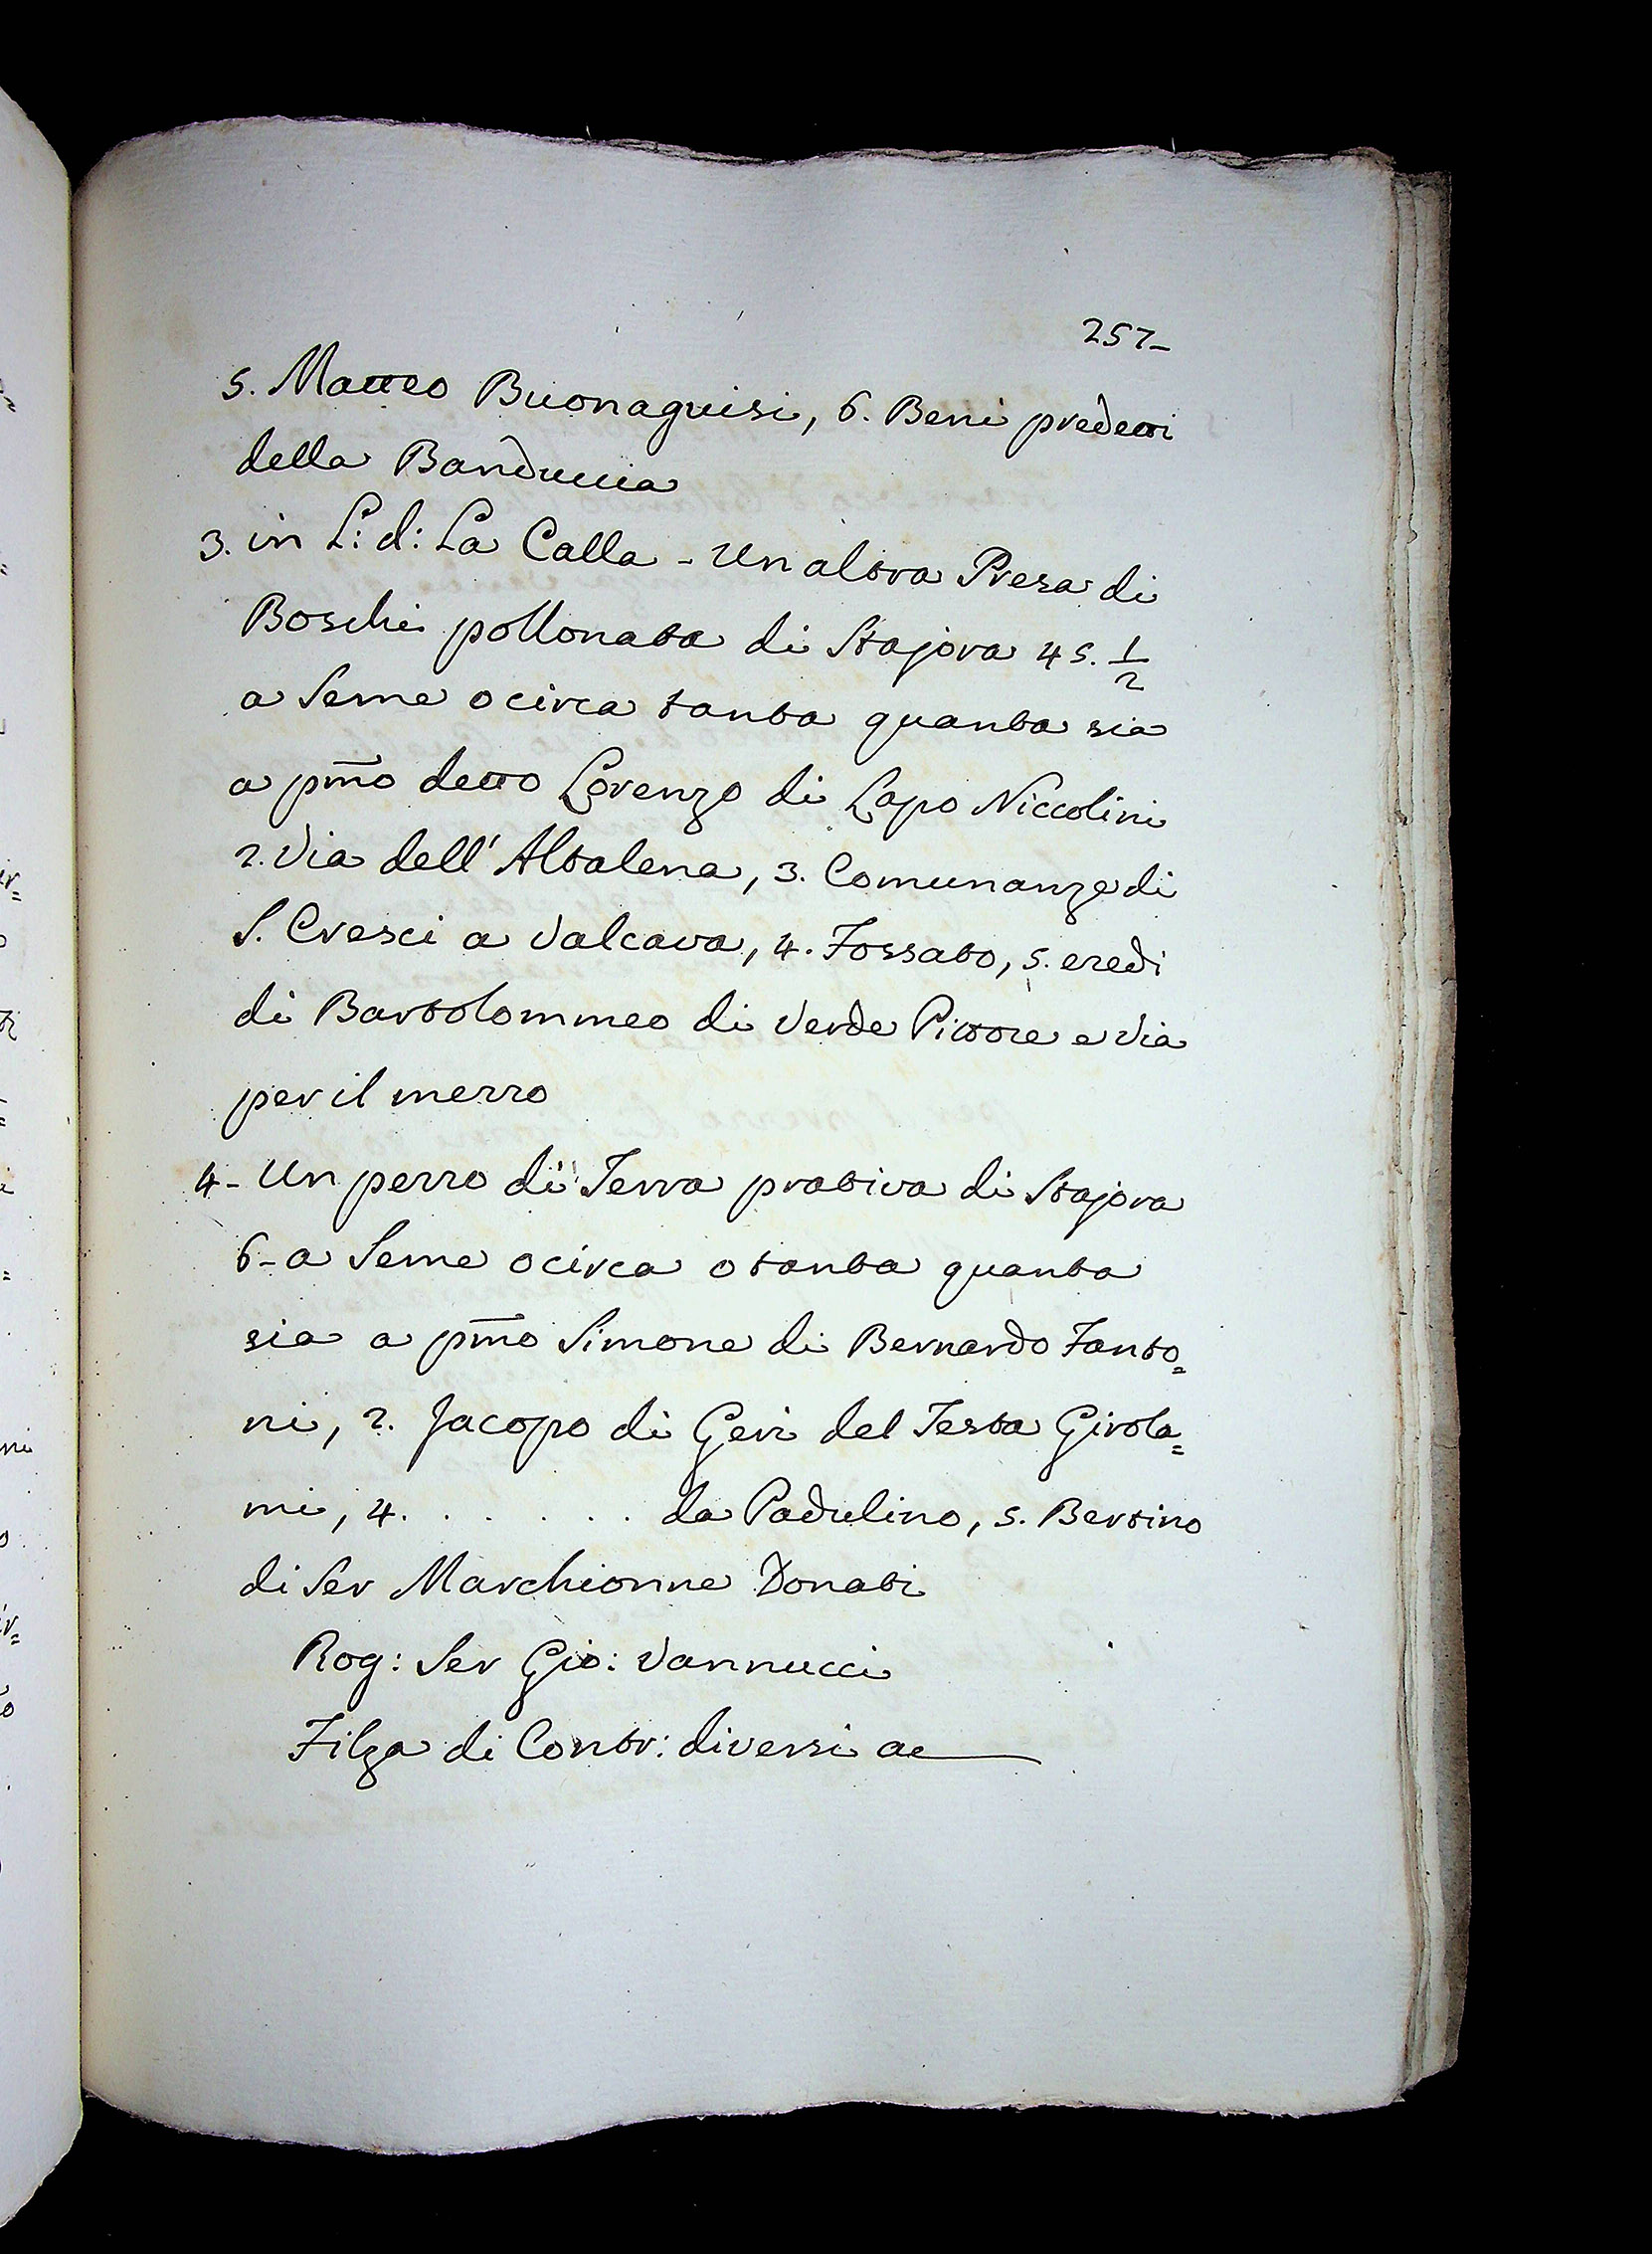 257-
5. Matteo Buonaguisi, 6. Beni predetti
della Banduccia
3. in L: d: La Calla - Un altra Presa di
Boschi pollonata di Stajora 45. 1/2
a Seme o circa tanta quanta sia
a pm̃o detto Lorenzo di Lapo Niccolini
2. Via dell' Altalena, 3. Comunanze di
S. Cresci a Valcava, 4. Fossato, 5. eredi
di Bartolommeo di Verde Pittore e Via
per il mezzo
4- Un pezzo di Terra prativa di Stajora
6- a Seme o circa o tanta quanta
sia a pm̃o Simone di Bernardo Fanto=
ni, 2. Jacopo di Geri del Testa Girola=
mi, 4. . . . . . . da Padulino, 5. Bertino
di Ser Marchionne Donati
Rog: Ser Gio: Vannucci
Filza di Contr: diversi ac